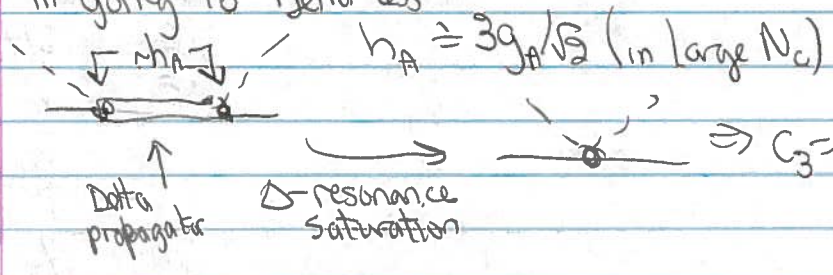 in going to
~h_A
h_A ≐ 3g_A/√2 (in large N_c)
⇒ C_3=
Delta
propagator
Δ-resonance
saturation